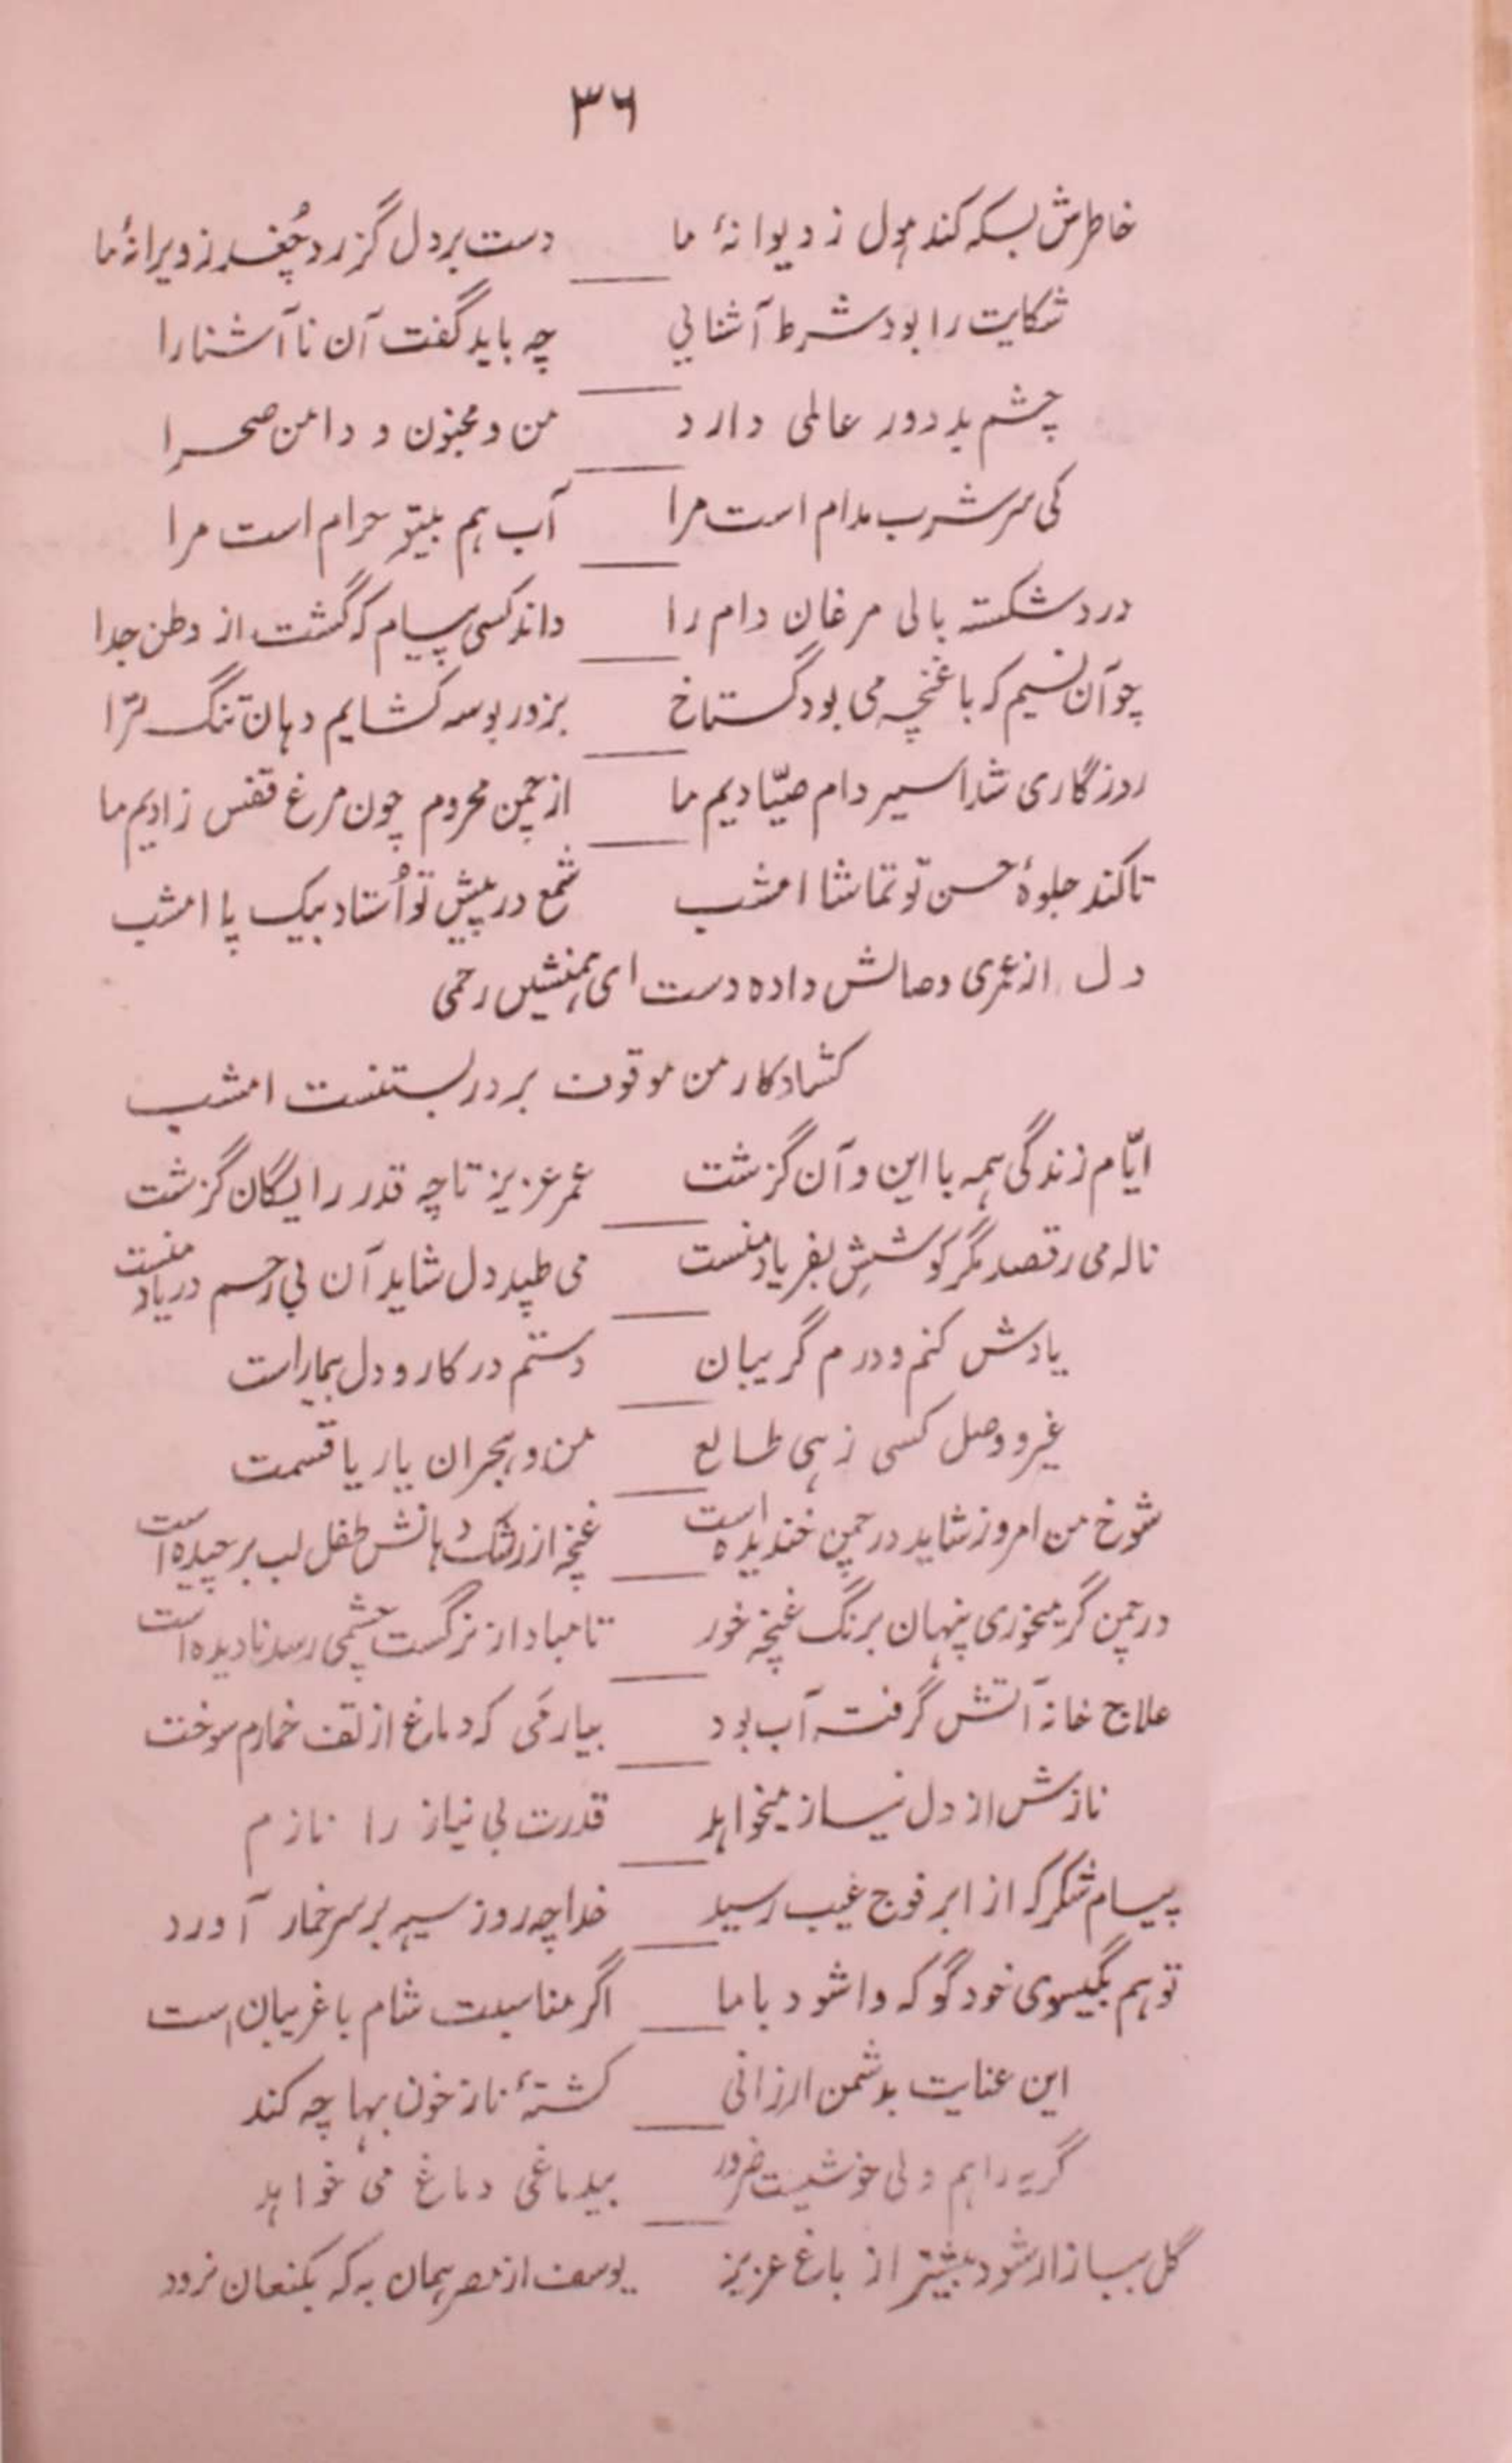 ۳۶
خاطرش بسکه کند هول ز دیوانهٔ ما دست بر دل گزرد چُغد ز ویرانهٔ ما
شکایت را بود شرط آشنایی چه باید گفت آن ناآشنا را
چشم بد دور عالمی دارد من و مجنون و دامن صحرا
کی سر شرب مدام است مرا آب هم بیتو حرام است مرا
درد شکسته بالی مرغان دام را داند کسی پیام که گشت از وطن جدا
چو آن نسیم که با غنچه می بود گستاخ بزور بوسه کشایم دهان تنگ ترا
روزگاری شد اسیر دام صیّادیم ما از چمن محروم چون مرغ قفس زادیم ما
تا کند جلوهٔ حسن تو تماشا امشب شمع در پیش تو اُستاد بیک پا امشب
دل از عمری وصالش داده دست ای همنشیں رحمی
کشاد کار من موقوف بر در بستنست امشب
ایّام زندگی همه با این و آن گزشت عمر عزیز تا چه قدر رایگان گزشت
ناله می رقصد مگر گوشِش بفریاد منست می طپد دل شاید آن بی رحم در یاد منست
یادش کنم و درم گریبان دستم در کار و دل بیمار است
غیر و وصل کسی زهی طالع من و هجران یار یا قسمت
شوخ من امروز شاید در چمن خندیده است غنچه از رشک دهانش طفل لب برچیده است
در چمن گر میخوری پنهان برنگ غنچه خور تا مبادا از نرگست چشمی رسد نادیده است
علاج خانهٔ آتش گرفته آب بود بیار می که دماغ از تف خمارم سوخت
نازش از دل نیاز میخواهد قدرت بی نیاز را نازم
پیام شکر که از ابر فوج غیب رسید خدا چه روز سیه بر سر خمار آورد
تو هم بگیسوی خود گو که وا شود با ما اگر مناسبت شام با غریبان است
این عنایت بدشمن ارزانی کشتهٔ ناز خون بها چه کند
گریه را هم دلی خوشیست ضرور بیدماغی دماغ می خواهد
گل ببازار شود بیشتر از باغ عزیز یوسف از مصر همان به که بکنعان نرود